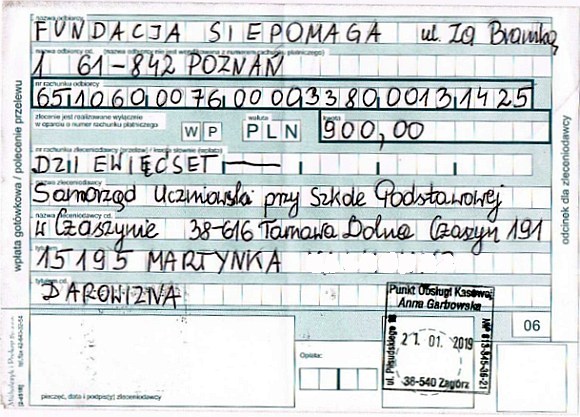 nazwa odbiorcy
FUNDACJA SIEPOMAGA ul. Za Bramką
nazwa odbiorcy cd. (nazwa odbiorcy nie jest weryfikowana z numerem rachunku płatniczego)
1 61-842 POZNAŃ
nr rachunku odbiorcy
65106000760000338000131425
zlecenie jest realizowane wyłącznie
w oparciu o numer rachunku płatniczego
W P
waluta
PLN
kwota
900,00
nr rachunku zleceniodawcy (przelew) / kwota słownie (wpłata)
DZIEWIĘĆSET
nazwa zleceniodawcy
Samorząd Uczniowski przy Szkole Podstawowej
nazwa zleceniodawcy cd.
w Czaszynie 38-616 Tarnawa Dolna Czaszyn 191
tytułem
15195 MARTYNKA
tytułem cd.
DAROWIZNA
wpłata gotówkowa / polecenie przelewu
odcinek dla zleceniodawcy
06
Opłata:
pieczęć, data i podpis(y) zleceniodawcy
Punkt Obsługi Kasowej
Anna Garbowska
ul. Piłsudskiego
01. 2019
38-540 Zagórz